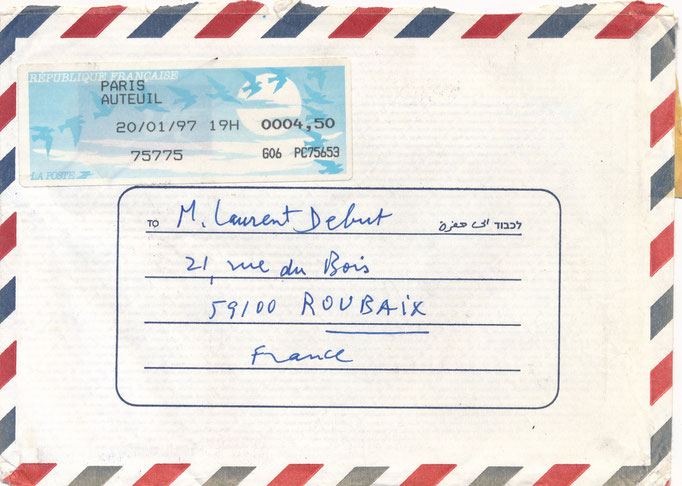 RÉPUBLIQUE FRANÇAISE
PARIS
AUTEUIL
20/01/97 19H 0004,50
75775 G06 PC75653
LA POSTE
TO M. Laurent Debut לכבוד الى حضرة
21, rue du Bois
59100 ROUBAIX
France